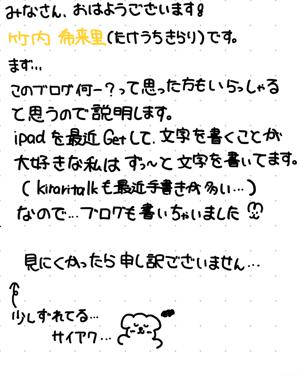 みなさん、おはようございます!
竹内 希来里(たけうちきらり)です。
まず…
このブログ何ー?って思った方もいらっしゃる
と思うので説明します。
ipadを最近Getして、文字を書くことが
大好きな私はずっ〜と文字を書いてます。
(kiraritalkも最近手書きが多い…)
なので…ブログも書いちゃいました
見にくかったら申し訳ございません…
少しずれてる…
サイアク…